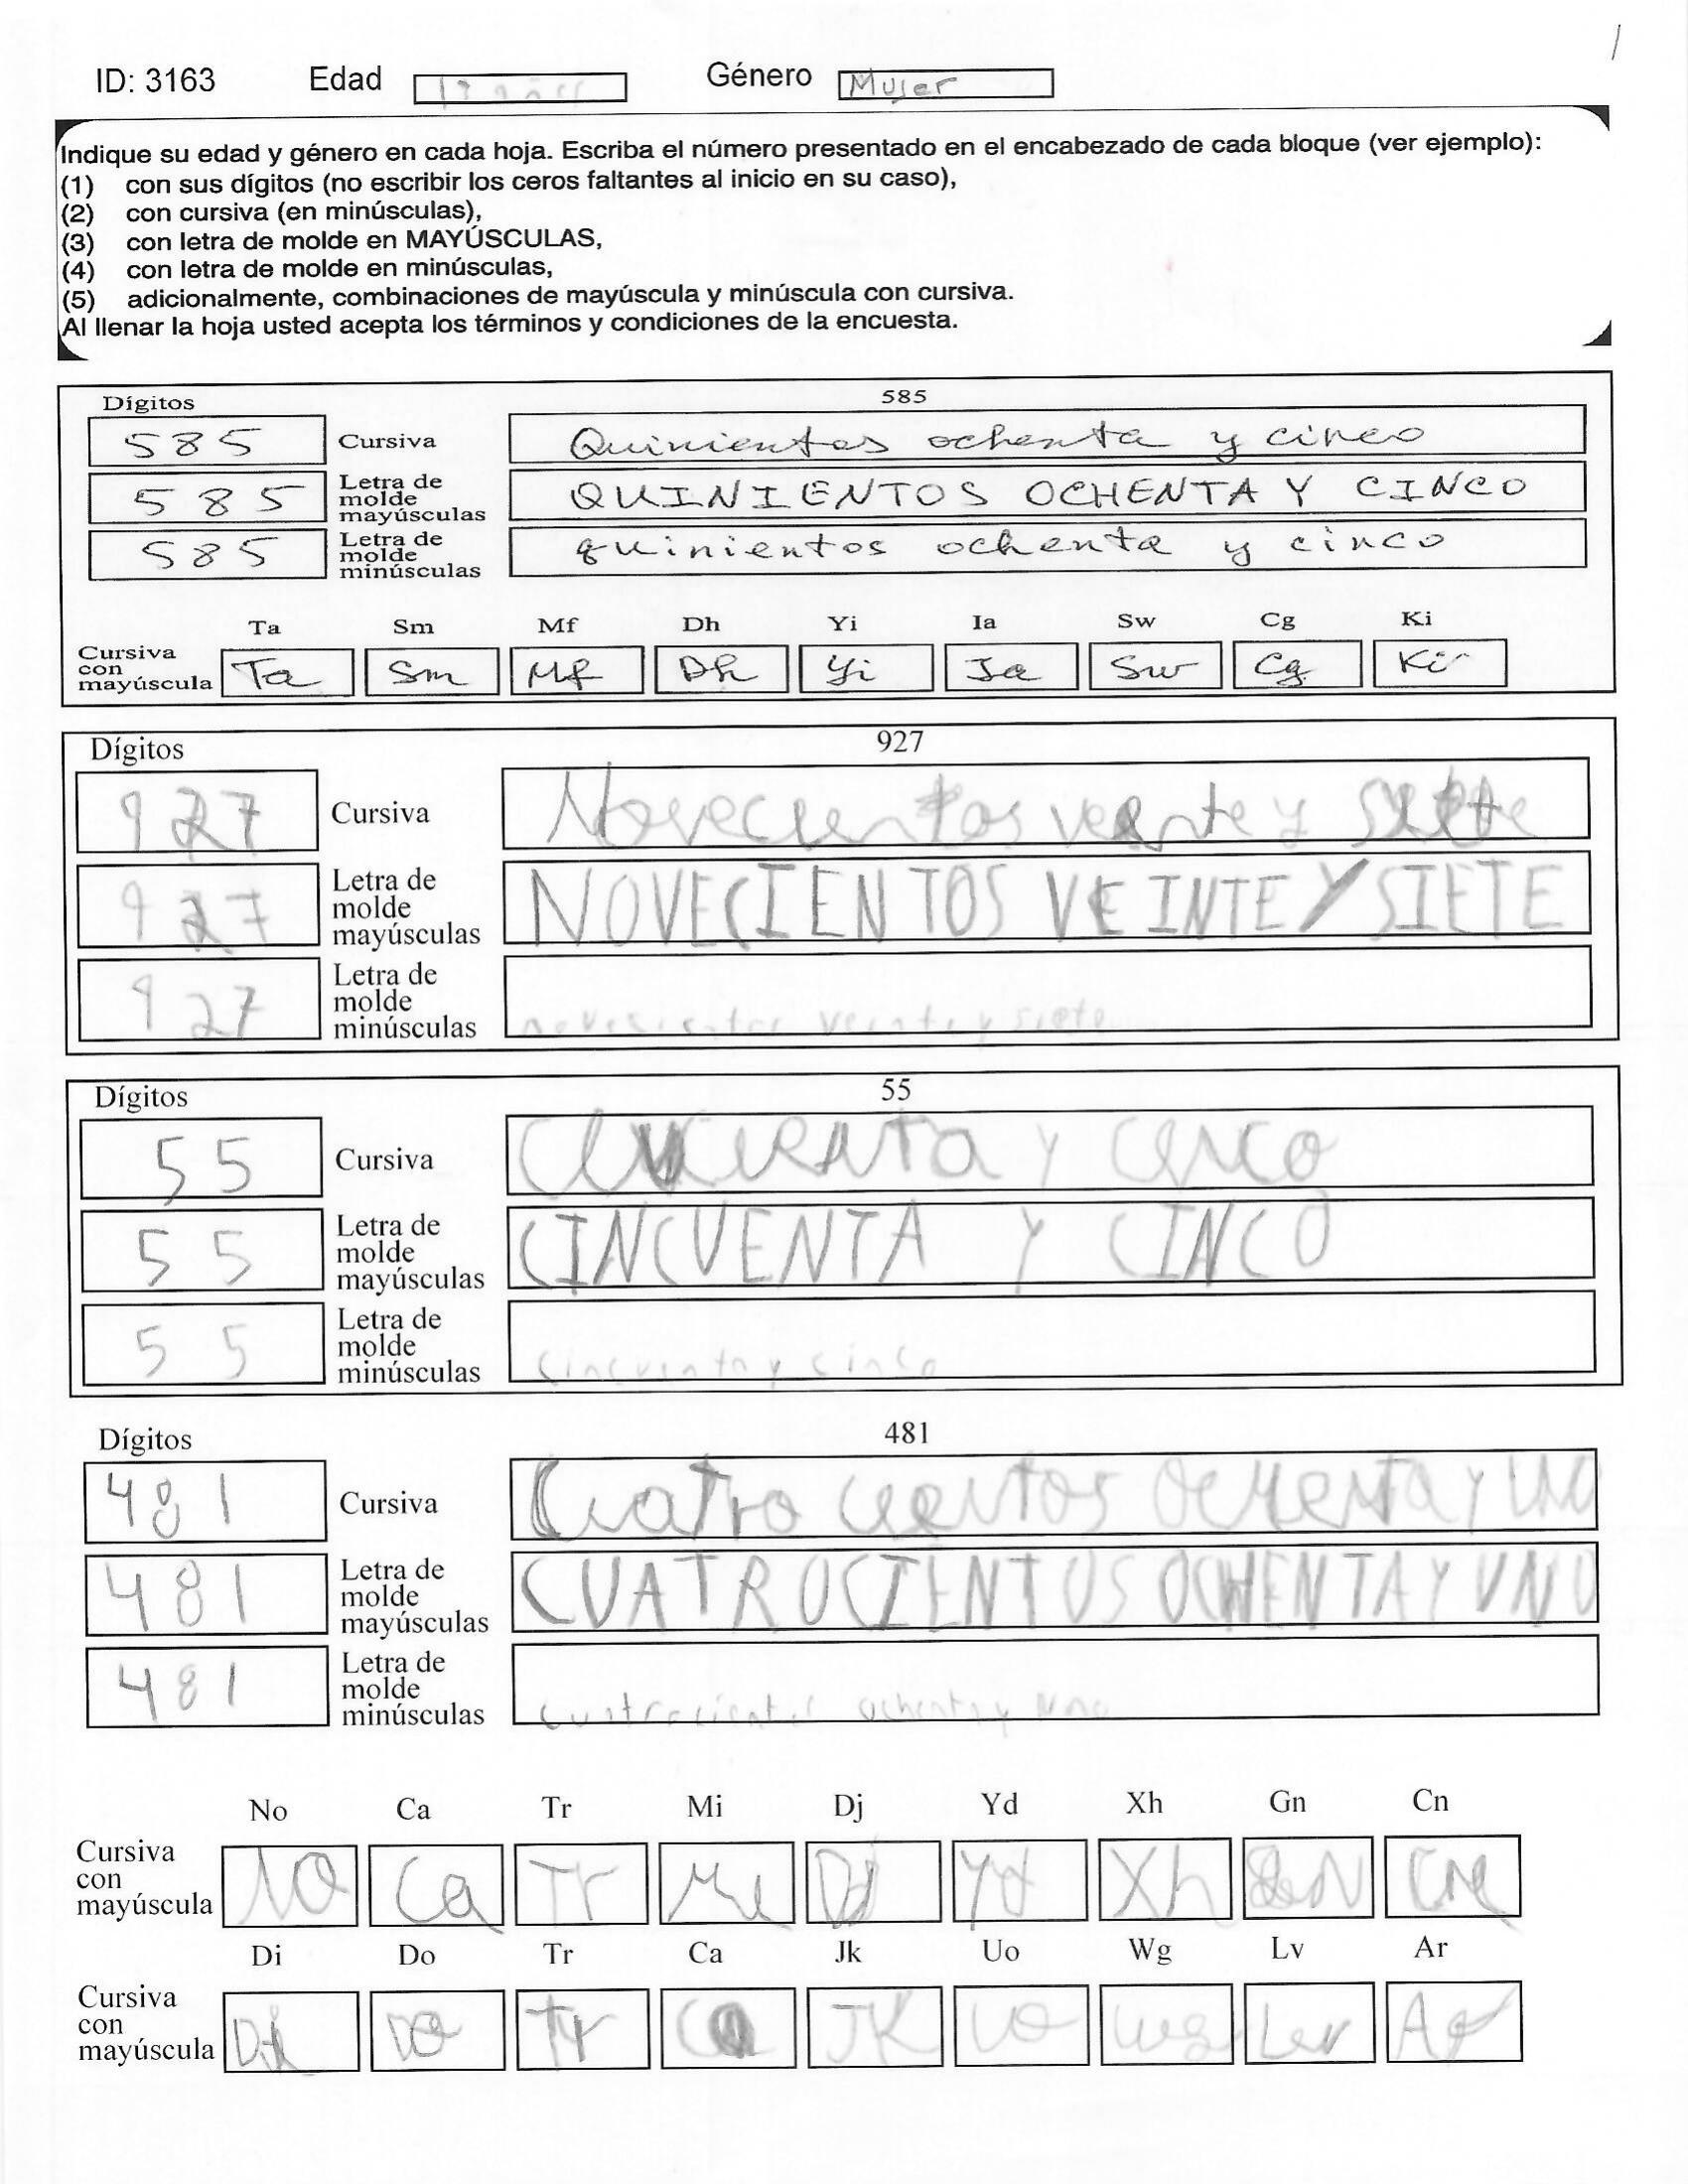 /
ID: 3163 Edad 13 años Género Mujer
Indique su edad y género en cada hoja. Escriba el número presentado en el encabezado de cada bloque (ver ejemplo):
(1) con sus dígitos (no escribir los ceros faltantes al inicio en su caso),
(2) con cursiva (en minúsculas),
(3) con letra de molde en MAYÚSCULAS,
(4) con letra de molde en minúsculas,
(5) adicionalmente, combinaciones de mayúscula y minúscula con cursiva.
Al llenar la hoja usted acepta los términos y condiciones de la encuesta.
Dígitos 585
585 Cursiva Quinientos ochenta y cinco
585 Letra de molde mayúsculas QUINIENTOS OCHENTA Y CINCO
585 Letra de molde minúsculas quinientos ochenta y cinco
Ta Sm Mf Dh Yi Ia Sw Cg Ki
Cursiva con mayúscula Ta Sm Mf Dh Yi Ia Sw Cg Ki
Dígitos 927
927 Cursiva Novecientos veinte y siete
927 Letra de molde mayúsculas NOVECIENTOS VEINTE Y SIETE
927 Letra de molde minúsculas novesientos veinte y siete
Dígitos 55
55 Cursiva y cinco
55 Letra de molde mayúsculas CINCUENTA Y CINCO
55 Letra de molde minúsculas cincuenta y cinco
Dígitos 481
481 Cursiva Cuatro cientos ochenta y uno
481 Letra de molde mayúsculas CUATROCIENTOS OCHENTA Y UNO
481 Letra de molde minúsculas cuatrocientos ochenta y uno
No Ca Tr Mi Dj Yd Xh Gn Cn
Cursiva con mayúscula No Ca Tr Mi Dj Yd Xh Cn
Di Do Tr Ca Jk Uo Wg Lv Ar
Cursiva con mayúscula Di Do Tr Ca JK Uo Wg Lv Ar